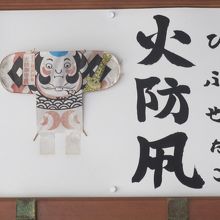 火防凧
ひぶせだこ